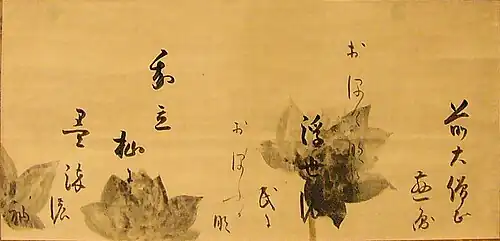 前大僧正
慈円
おほけなく
浮世の
民に
おほふ哉
我立
杣に
墨染濃
袖